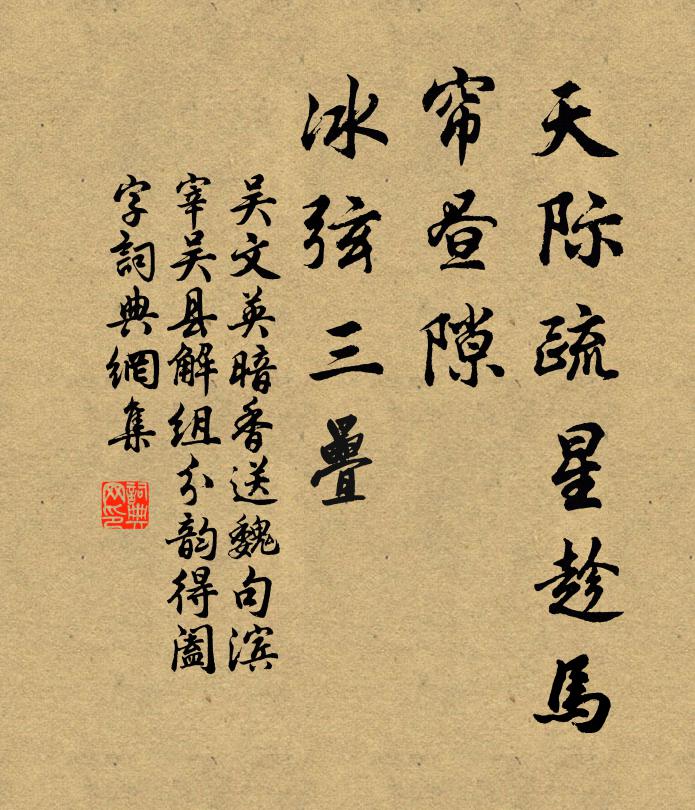 天际疏星趁馬
帘昼隙
冰弦三疊
吴文英暗香送魏句滨
宰吴县解组分韵得阖
字詞典網集
詞典网印